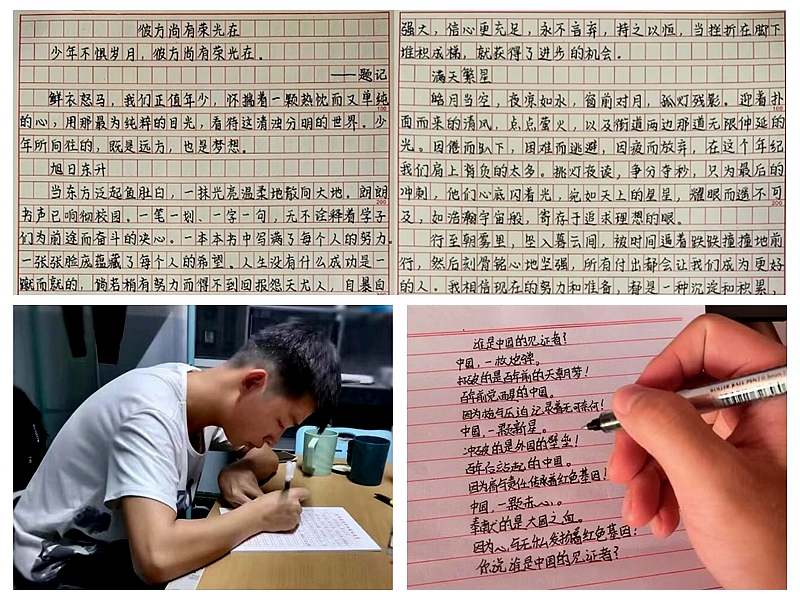 彼方尚有荣光在
少年不惧岁月，彼方尚有荣光在。
——题记
鲜衣怒马，我们正值年少，怀揣着一颗热忱而又单纯
的心，用那最为纯粹的目光，看待这清浊分明的世界。少
年所向往的，既是远方，也是梦想。
旭日东升
当东方泛起鱼肚白，一抹光亮温柔地散向大地。朗朗
书声已响彻校园。一笔一划、一字一句，无不诠释着学子
们为前途而奋斗的决心。一本本书中写满了每个人的努力。
一张张脸庞蕴藏了每个人的希望。人生没有什么成功是一
蹴而就的，倘若稍有努力而得不到回报怨天尤人，自暴自
强大，信心更充足，永不言弃，持之以恒，当挫折在脚下
堆积成梯，就获得了进步的机会。
满天繁星
皓月当空，夜凉如水，窗前对月，孤灯残影。迎着扑
面而来的清风，点点萤火，以及街道两边那道无限伸延的
光。因倦而趴下，困难而逃避，因疲而放弃，在这个年纪
我们肩上背负的太多。挑灯夜读，争分夺秒，只为最后的
冲刺，他们心底闪着光，宛如天上的星星，耀眼而遥不可
及，如浩瀚宇宙般，寄存于追求理想的眼。
行至朝雾里，坠入暮云间，被时间逼着跌跌撞撞地前
行，然后刻骨铭心地坚强，所有付出都会让我们成为更好
的人。我相信现在的努力和准备，都是一种沉淀和积累，
100
200
100
200
谁是中国的见证者？
中国，一枚炮弹。
打破的是百年前的天朝梦！
百年前的中国。
中国，一颗新星。
冲破的是外国的壁垒！
百年后的中国。
中国，一颗赤心。
奉献的是大国之血。
你说谁是中国的见证者？